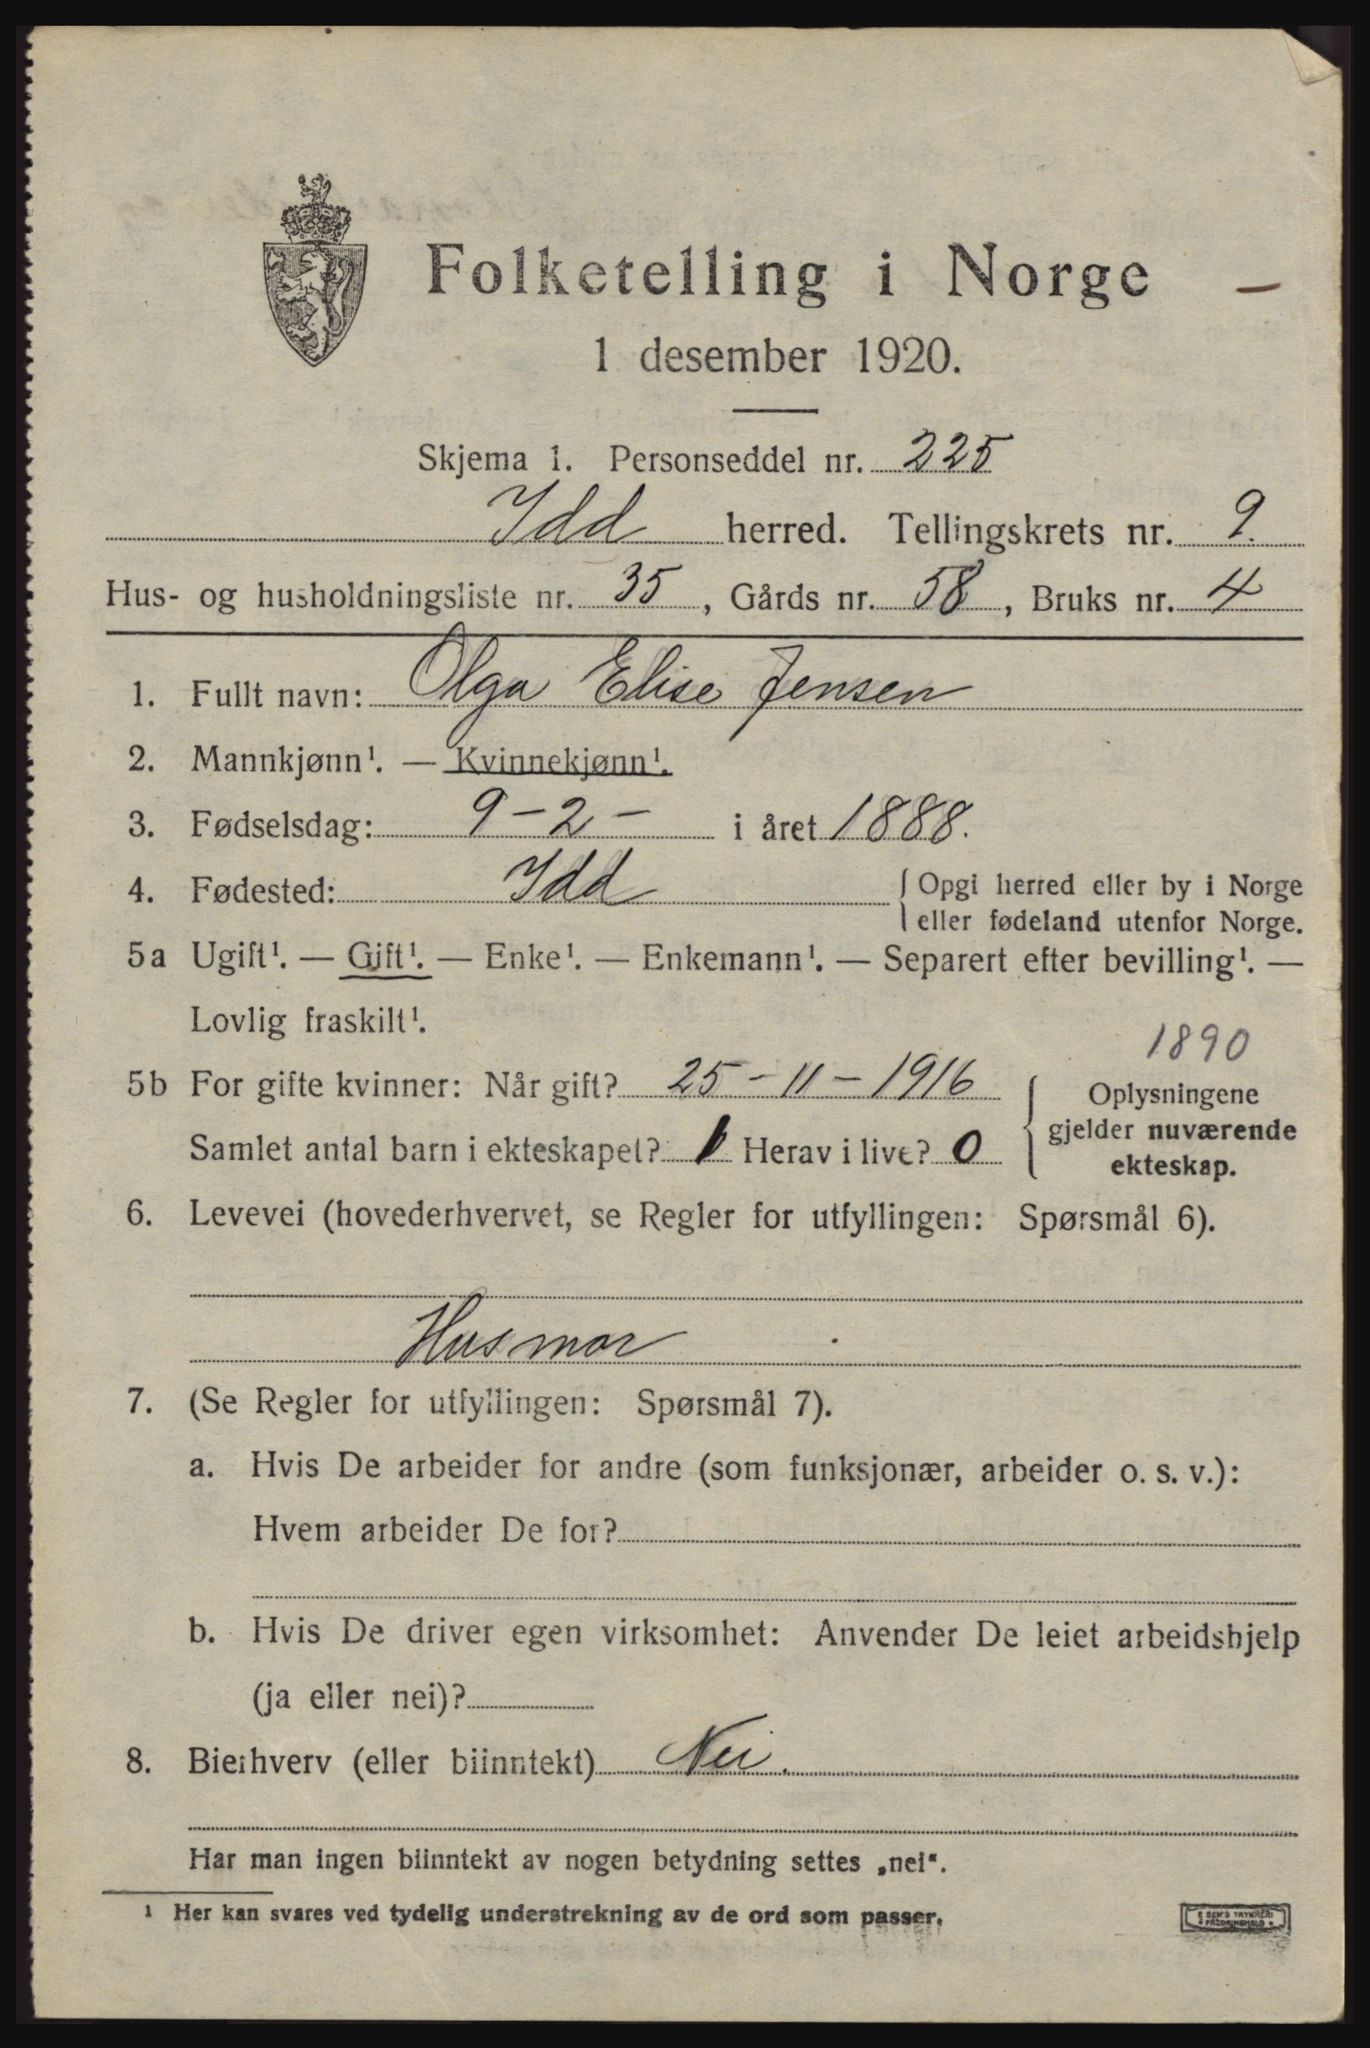 Folketelling i Norge
1 desember 1920.
Skjema 1. Personseddel nr. 225
Idd herred. Tellingskrets nr. 9.
Hus- og husholdningsliste nr. 35, Gårds nr. 58, Bruks nr. 4
1. Fullt navn: Olga Elise Jensen
2. Mannkjønn¹. — Kvinnekjønn¹.
3. Fødselsdag: 9-2- i året 1888.
4. Fødested: Idd { Opgi herred eller by i Norge
eller fødeland utenfor Norge.
5a Ugift¹. — Gift¹. — Enke¹. — Enkemann¹. — Separert efter bevilling¹. —
Lovlig fraskilt¹.
1890
5b For gifte kvinner: Når gift? 25-11-1916
Samlet antal barn i ekteskapet? 1 Herav i live? 0
{ Oplysningene
gjelder nuværende
ekteskap.
6. Levevei (hovederhvervet, se Regler for utfyllingen: Spørsmål 6).
Husmor
7. (Se Regler for utfyllingen: Spørsmål 7).
a. Hvis De arbeider for andre (som funksjonær, arbeider o. s. v.):
Hvem arbeider De for?
b. Hvis De driver egen virksomhet: Anvender De leiet arbeidshjelp
(ja eller nei)?
8. Bierhverv (eller biinntekt) Nei.
Har man ingen biinntekt av nogen betydning settes „nei“.
¹ Her kan svares ved tydelig understrekning av de ord som passer.
SEM'S TRYKKERI
FREDRIKSHALD